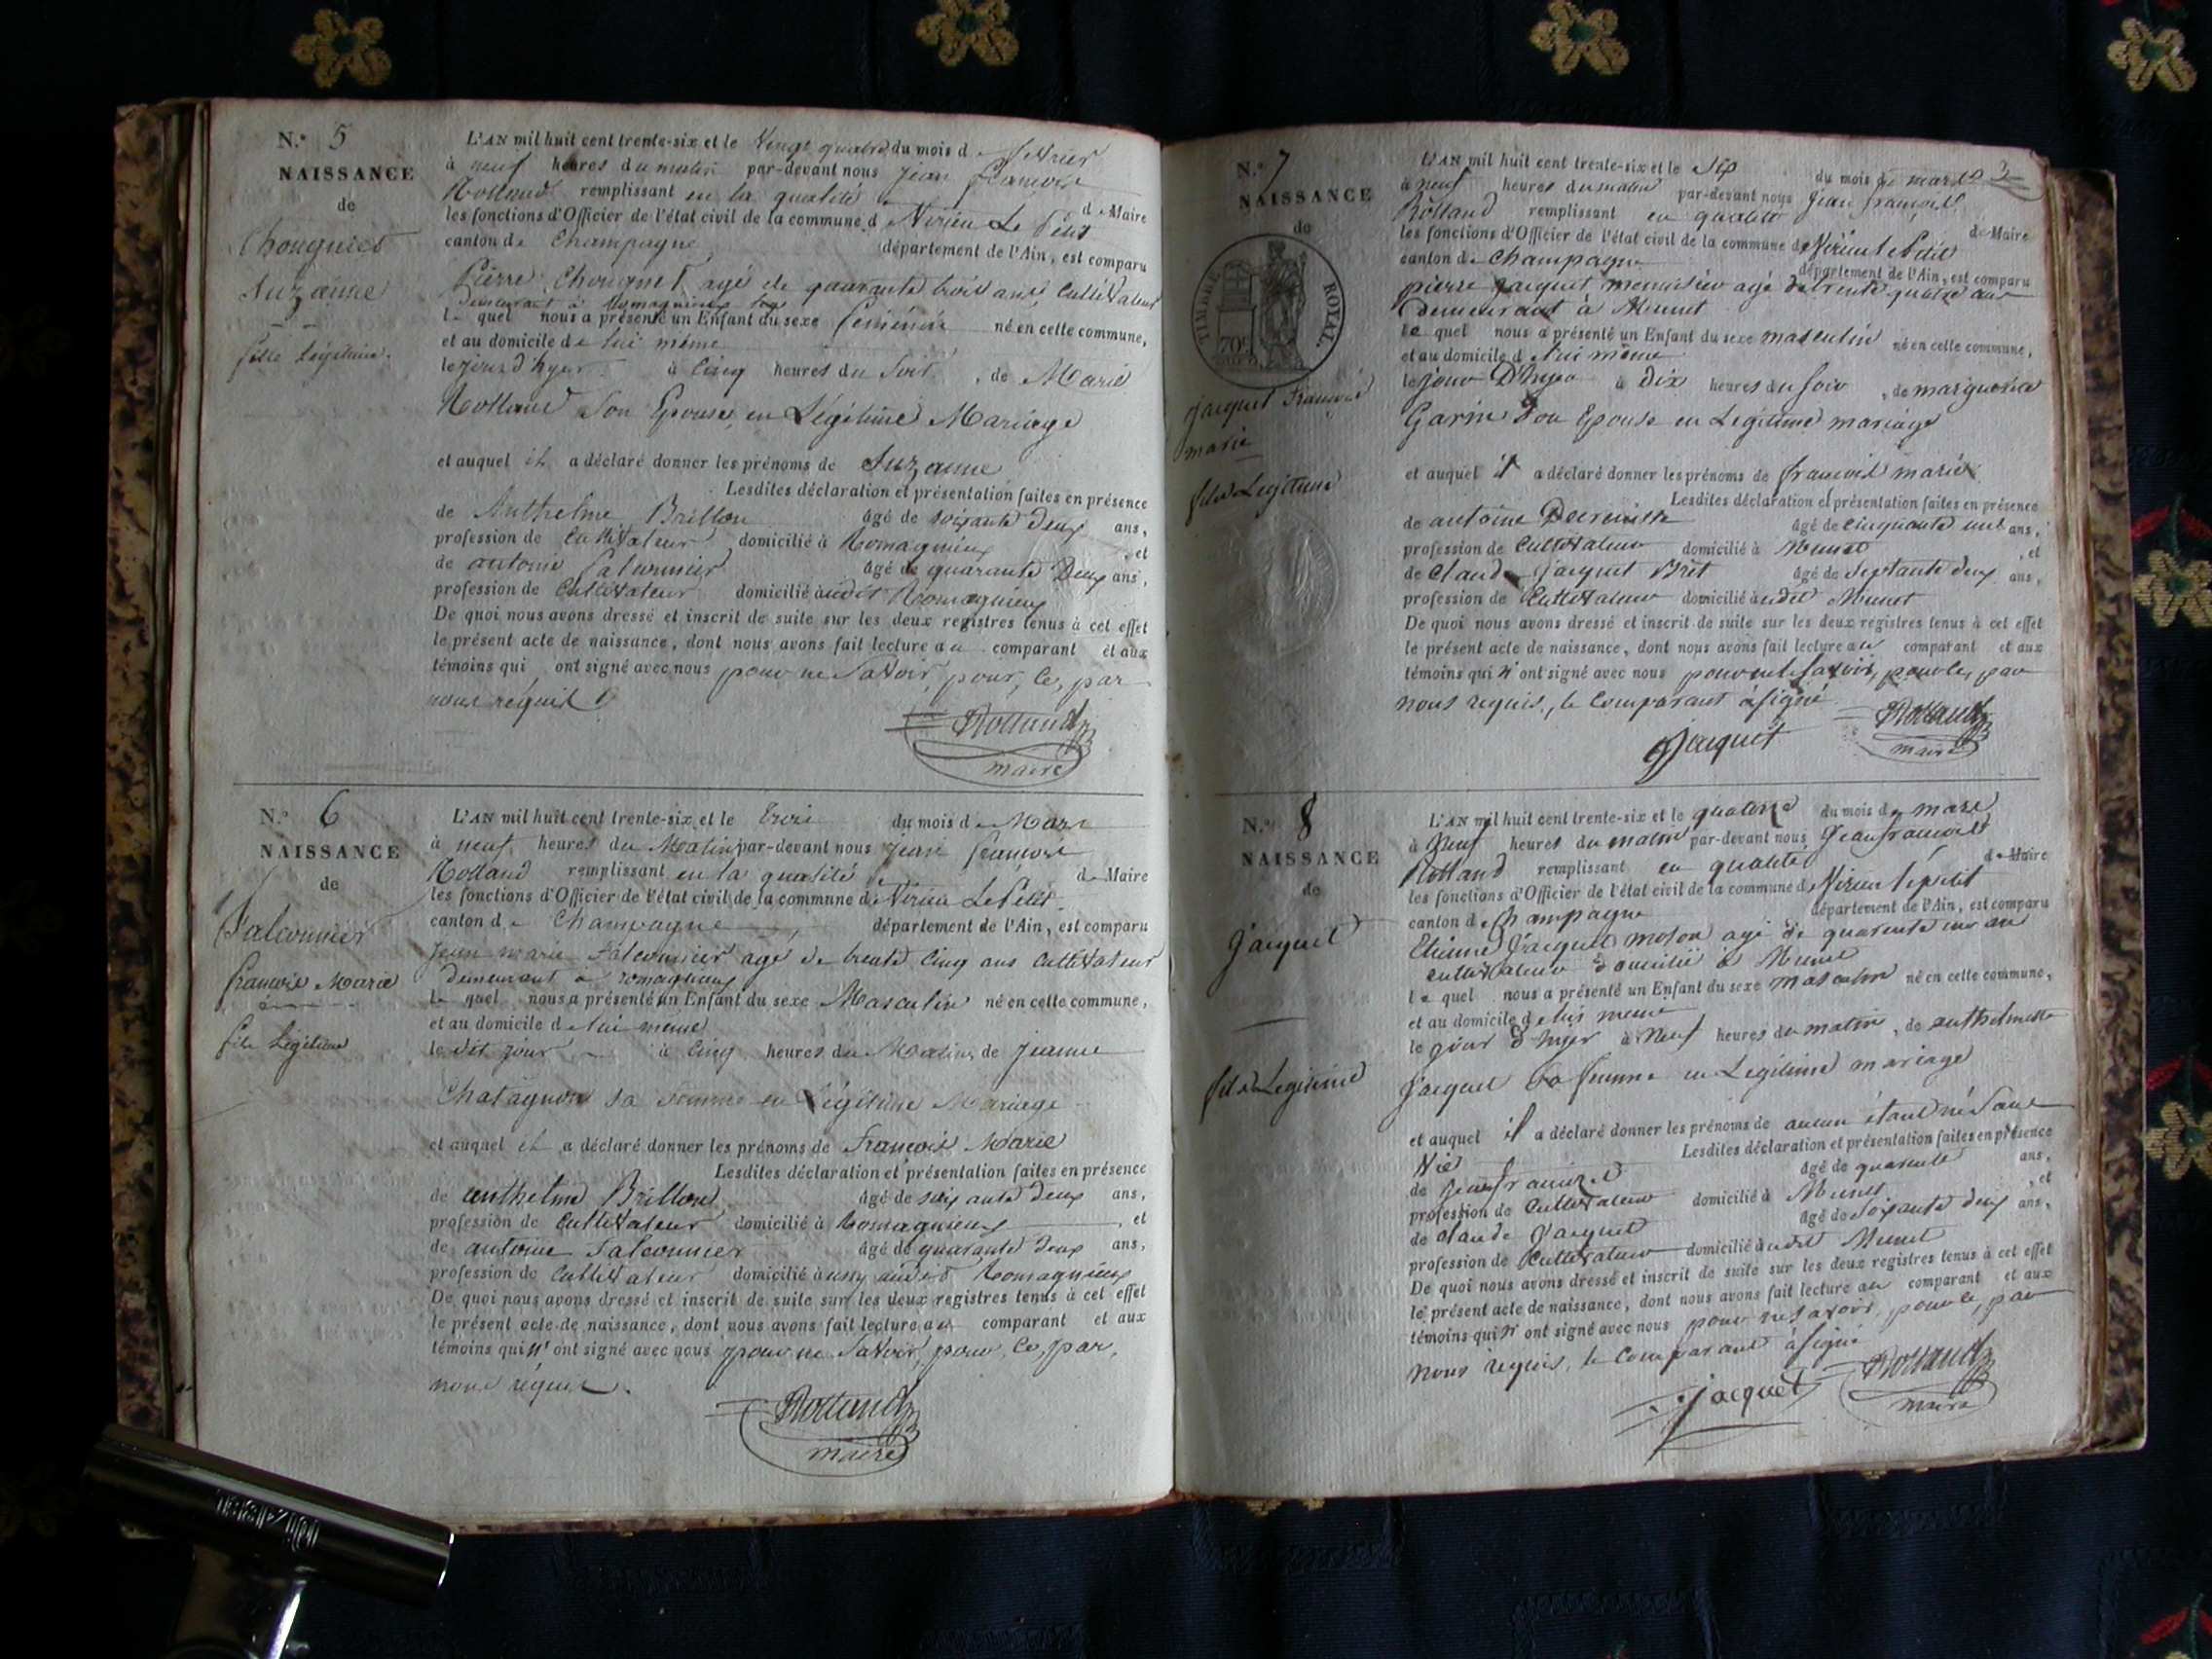 N.° 5
NAISSANCE
de
Chougnet
Suzanne
fille Légitime.
L'AN mil huit cent trente-six et le Vingt quatre du mois de fevrier
à neuf heures du matin par-devant nous jean françois
Rolland remplissant en la qualité de Maire
les fonctions d'Officier de l'état civil de la commune de Virieu Le Petit
canton de Champagne département de l'Ain, est comparu
Pierre Chougnet agé de quarante trois ans, Cultivateur
demeurant à Romagnieux
le quel nous a présenté un Enfant du sexe féminin né en cette commune,
et au domicile de lui même
le jour d'hyer à Cinq heures du Soir, de Marie
Rolland Son Epouse, en Légitime Mariage
et auquel il a déclaré donner les prénoms de Suzanne
Lesdites déclaration et présentation faites en présence
de Anthelme Brillon âgé de soixante deux ans,
profession de Cultivateur domicilié à Romagnieux, et
de antoine falconnier âgé de quarante Deux ans,
profession de Cultivateur domicilié audit Romagnieux
De quoi nous avons dressé et inscrit de suite sur les deux registres tenus à cet effet
le présent acte de naissance, dont nous avons fait lecture au comparant et aux
témoins qui ont signé avec nous pour ne Savoir, pour, ce, par
nous requis
Rolland
maire
N.° 6
NAISSANCE
de
Falconnier
françois Marie
fils Légitime
L'AN mil huit cent trente-six et le trois du mois de Mars
à neuf heures du Matin par-devant nous jean françois
Rolland remplissant en la qualité de Maire
les fonctions d'Officier de l'état civil de la commune de Virieu Le Petit
canton de Champagne, département de l'Ain, est comparu
Jean marie Falconnier agé de trente Cinq ans Cultivateur
demeurant à romagnieux
le quel nous a présenté un Enfant du sexe Masculin né en cette commune,
et au domicile de lui même
le dit jour à Cinq heures du Matin, de jeanne
Chatagnon sa femme en Légitime Mariage
et auquel il a déclaré donner les prénoms de François Marie
Lesdites déclaration et présentation faites en présence
de anthelme Brillon âgé de soixante deux ans,
profession de Cultivateur domicilié à Romagnieux, et
de antoine Falconnier âgé de quarante deux ans,
profession de Cultivateur domicilié aussy audit Romagnieux
De quoi nous avons dressé et inscrit de suite sur les deux registres tenus à cet effet
le présent acte de naissance, dont nous avons fait lecture au comparant et aux
témoins qui n'ont signé avec nous pour ne Savoir, pour, ce, par,
nous requis.
Rolland
maire
3
N.° 7
NAISSANCE
de
TIMBRE ROYAL.
70c
jacquet François
marie
fils Légitime
L'AN mil huit cent trente-six et le Six du mois de mars
à neuf heures du matin par-devant nous jean françois
Rolland remplissant en qualité de Maire
les fonctions d'Officier de l'état civil de la commune de Virieu le Petit
canton de Champagne département de l'Ain, est comparu
pierre jacquet menuisier agé de trente quatre ans
demeurant à Munet
le quel nous a présenté un Enfant du sexe masculin né en cette commune,
et au domicile de lui même
le jour D'hyer à Dix heures du soir, de marguerite
Garin Son Epouse en Légitime mariage
et auquel il a déclaré donner les prénoms de françois marie
Lesdites déclaration et présentation faites en présence
de antoine âgé de cinquante un ans,
profession de Cultivateur domicilié à Munet, et
de Claude Jacquet Bret âgé de Septante deux ans,
profession de Cultivateur domicilié audit Munet
De quoi nous avons dressé et inscrit de suite sur les deux registres tenus à cet effet
le présent acte de naissance, dont nous avons fait lecture au comparant et aux
témoins qui n'ont signé avec nous pour ne Savoir, pour ce, par
nous requis, le Comparant à signé
Jacquet
Rolland
maire
N.° 8
NAISSANCE
de
Jacquet
fils Légitime
L'AN mil huit cent trente-six et le quatorze du mois de mars
à Neuf heures du matin par-devant nous Jean françois
Rolland remplissant en qualité de Maire
les fonctions d'Officier de l'état civil de la commune de Virieu le petit
canton de Champagne département de l'Ain, est comparu
Etienne Jacquet agé de quarente un an
cultivateur domicilié à Munet
le quel nous a présenté un Enfant du sexe masculin né en cette commune,
et au domicile de lui meme
le jour d'hyer à Neuf heures du matin, de anthelmette
Jacquet Sa femme en Légitime mariage
et auquel il a déclaré donner les prénoms de aucun étant né Sans
Vie Lesdites déclaration et présentation faites en présence
de âgé de quarente ans,
profession de Cultivateur domicilié à Munet, et
de Claude Jacquet âgé de Soixante deux ans,
profession de Cultivateur domicilié audit Munet
De quoi nous avons dressé et inscrit de suite sur les deux registres tenus à cet effet
le présent acte de naissance, dont nous avons fait lecture au comparant et aux
témoins qui n'ont signé avec nous pour ne Savoir, pour ce, par
nous requis, le Comparant à signé
jacquet
Rolland
maire